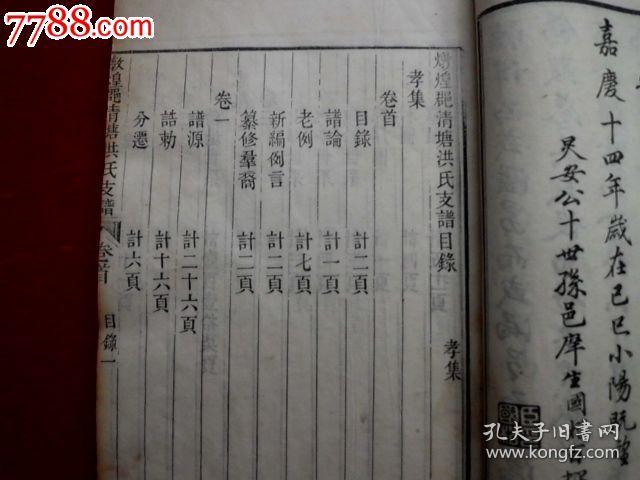 7788.com
嘉慶十四年歲在己巳小陽既望
炅安公十世孫邑庠生國
燉煌𨞬清塘洪氏支譜目錄 孝集
孝集
卷首
目錄 計二頁
譜論 計一頁
老例 計七頁
新編例言 計二頁
纂修羣裔 計二頁
卷一
譜源 計二十六頁
誥勅 計十六頁
分遷 計六頁
清塘洪氏支譜 卷首 目錄一
孔夫子旧书网
www.kongfz.com